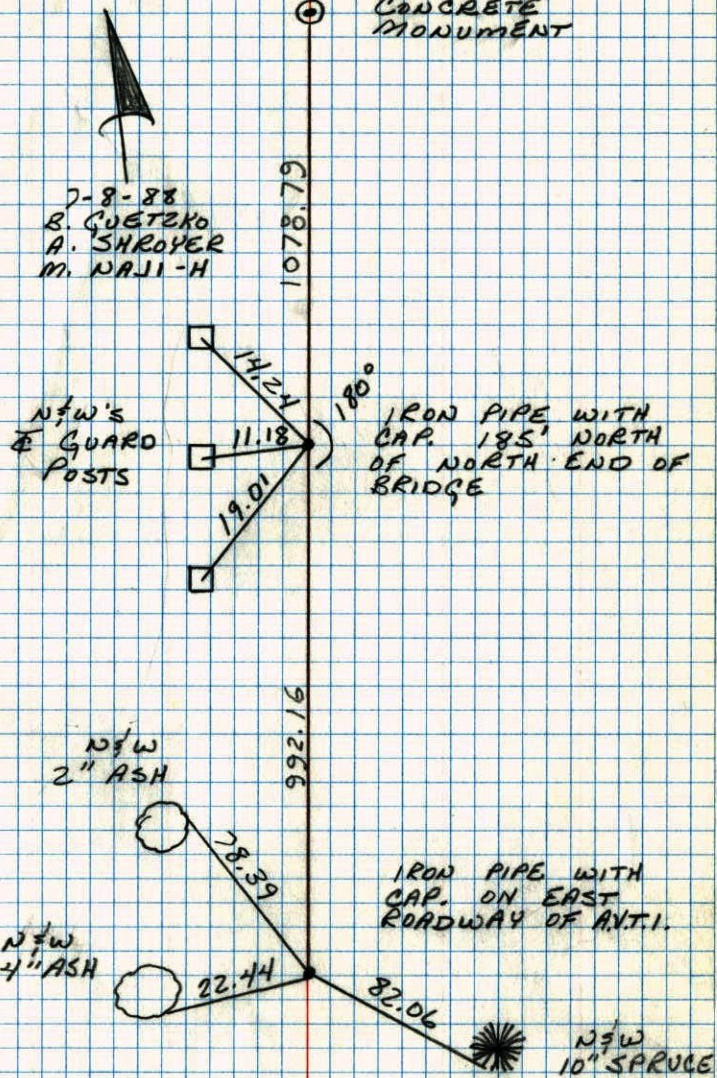 CONCRETE
MONUMENT
7-8-88
B. GUETZKO
A. SHROYER
M. NAJI-H
1078.79
14.24
180°
N&W'S
℄ GUARD
POSTS
11.18
19.01
IRON PIPE WITH
CAP. 185' NORTH
OF NORTH END OF
BRIDGE
992.16
N&W
2" ASH
78.39
IRON PIPE WITH
CAP. ON EAST
ROADWAY OF A.V.T.I.
N&W
4" ASH
22.44
82.06
N&W
10" SPRUCE